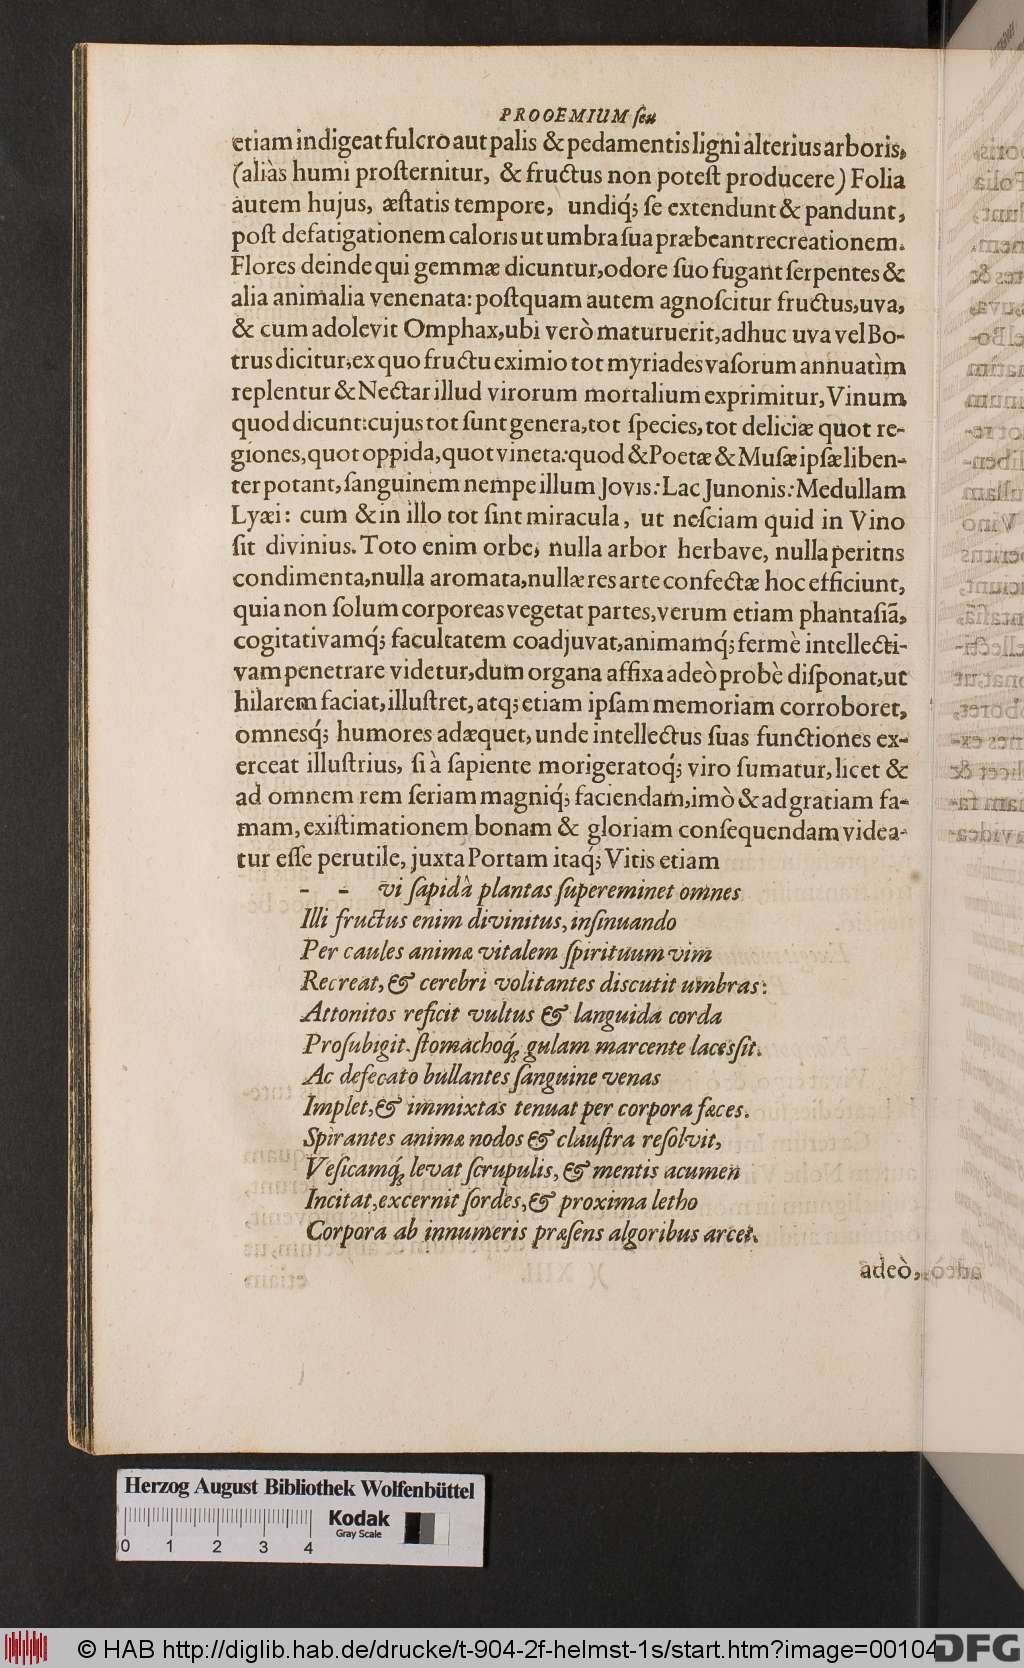 PROOEMIUM ſeu
etiam indigeat fulcro aut palis & pedamentis ligni alterius arboris,
(aliàs humi proſternitur, & fructus non poteſt producere) Folia
autem hujus, æſtatis tempore, undiq́; ſe extendunt & pandunt,
poſt defatigationem caloris ut umbra ſua præbeant recreationem.
Flores deinde qui gemmæ dicuntur, odore ſuo fugant ſerpentes &
alia animalia venenata: poſtquam autem agnoſcitur fructus, uva,
& cum adolevit Omphax, ubi verò maturuerit, adhuc uva vel Bo-
trus dicitur, ex quo fructu eximio tot myriades vaſorum annuatìm
replentur & Nectar illud virorum mortalium exprimitur, Vinum
quod dicunt: cujus tot ſunt genera, tot ſpecies, tot deliciæ quot re-
giones, quot oppida, quot vineta: quod & Poetæ & Muſæ ipſæ liben-
ter potant, ſanguinem nempe illum Jovis: Lac Junonis: Medullam
Lyæi: cum & in illo tot ſint miracula, ut neſciam quid in Vino
ſit divinius. Toto enim orbe, nulla arbor herbave, nulla peritns
condimenta, nulla aromata, nullæ res arte confectæ hoc efficiunt,
quia non ſolum corporeas vegetat partes, verum etiam phantaſiã,
cogitativamq́; facultatem coadjuvat, animamq́; fermè intellecti-
vam penetrare videtur, dum organa affixa adeò probè diſponat, ut
hilarem faciat, illuſtret, atq; etiam ipſam memoriam corroboret,
omnesq́; humores adæquet, unde intellectus ſuas functiones ex-
erceat illuſtrius, ſi à ſapiente morigeratoq́; viro ſumatur, licet &
ad omnem rem ſeriam magniq́; faciendam, imò & ad gratiam fa-
mam, exiſtimationem bonam & gloriam conſequendam videa-
tur eſſe perutile, juxta Portam itaq́; Vitis etiam
- - vi ſapidâ plantas ſupereminet omnes
Illi fructus enim divinitus, inſinuando
Per caules animæ vitalem ſpirituum vim
Recreat, & cerebri volitantes discutit umbras:
Attonitos reficit vultus & languida corda
Proſubigit. ſtomachoq́; gulam marcente lacesſit.
Ac defecato bullantes ſanguine venas
Implet, & immixtas tenuat per corpora fæces.
Spirantes animæ nodos & clauſtra reſolvit,
Veſicamq́; levat ſcrupulis, & mentis acumen
Incitat, excernit ſordes, & proxima letho
Corpora ab innumeris præſens algoribus arcet.
adeò,
Herzog August Bibliothek Wolfenbüttel
Kodak
Gray Scale
0 1 2 3 4
© HAB http://diglib.hab.de/drucke/t-904-2f-helmst-1s/start.htm?image=00104
DFG